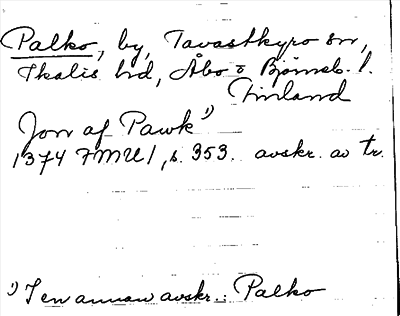 Palko, by, Tavastkyro sn,
Ikalis hd, Åbo o Bjørneb. l.
Finland
Jon af Pawk¹⁾
1374 FMU I, s. 353. avskr. av tr.
¹⁾ I en annan avskr.: Palko